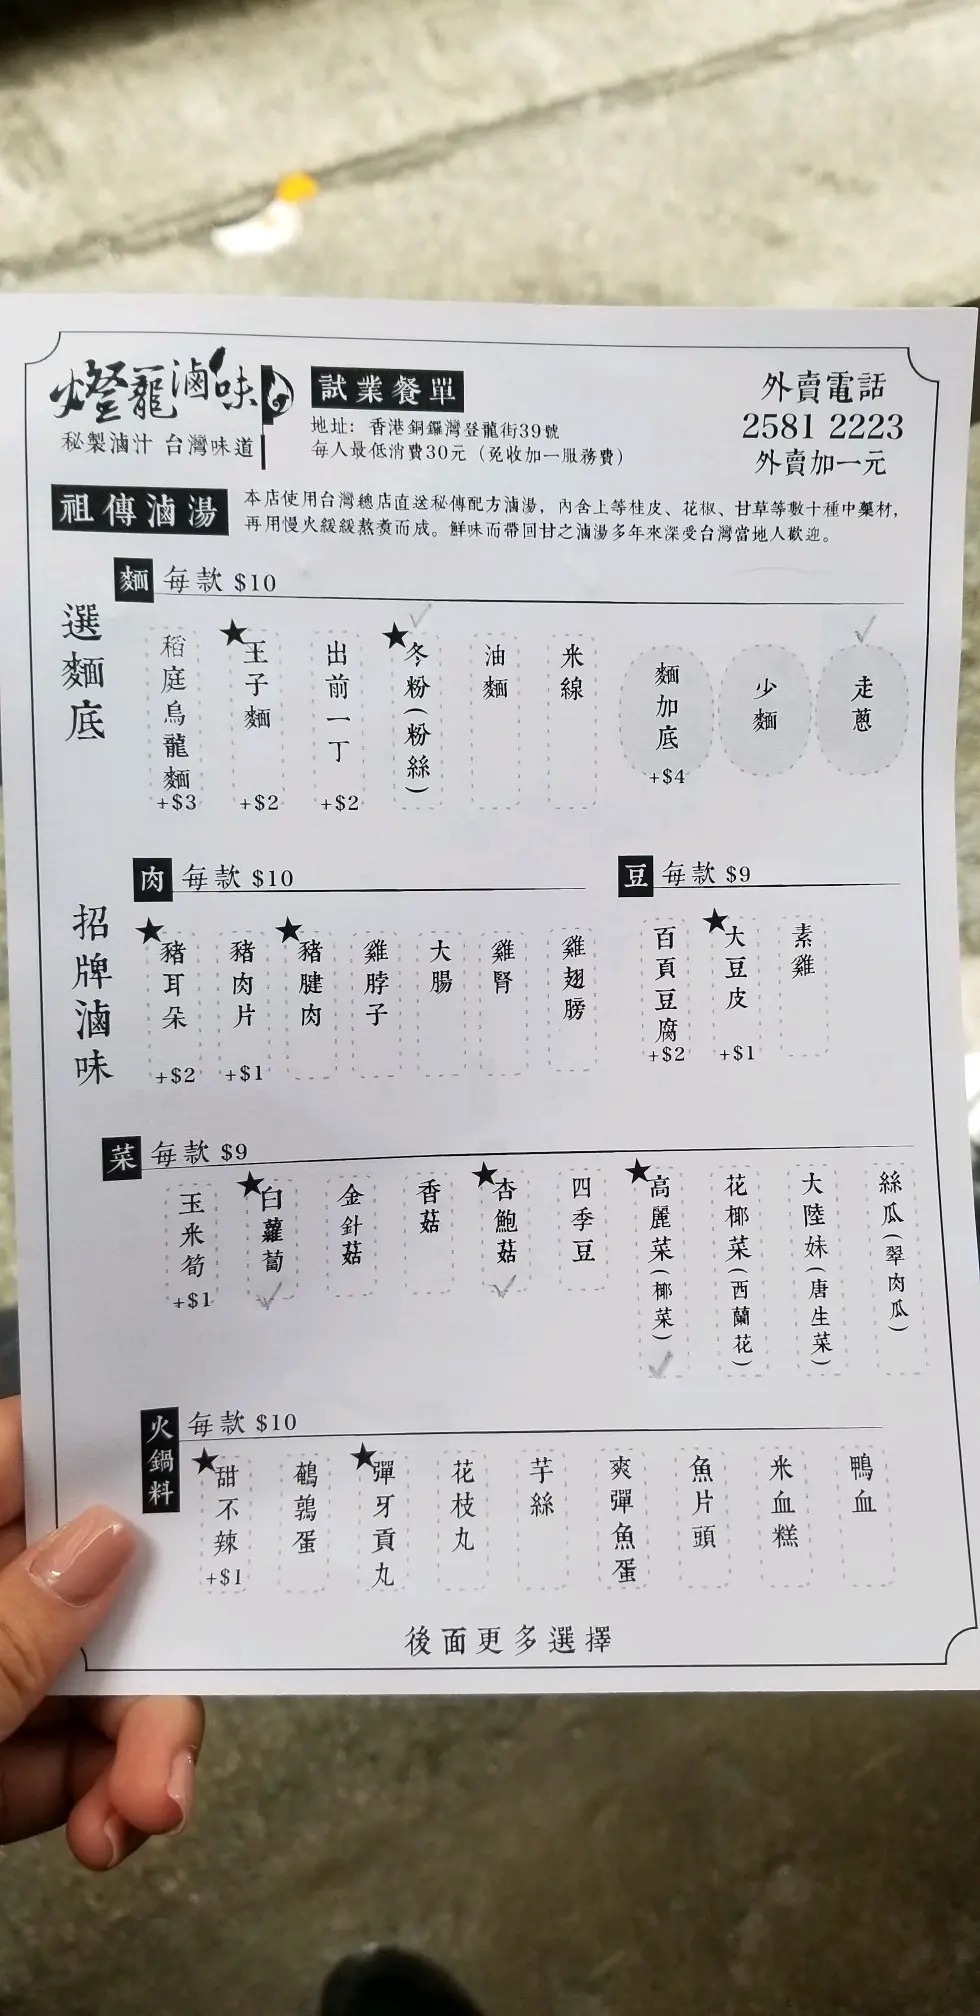 燈籠滷味
秘製滷汁 台灣味道
試業餐單
地址：香港銅鑼灣登龍街39號
每人最低消費30元（免收加一服務費）
外賣電話
2581 2223
外賣加一元
祖傳滷湯
本店使用台灣總店直送秘傳配方滷湯，內含上等桂皮、花椒、甘草等數十種中藥材，
再用慢火緩緩熬煑而成。鮮味而帶回甘之滷湯多年來深受台灣當地人歡迎。
選麵底
麵 每款 $10
稻庭烏龍麵 +$3
★王子麵 +$2
出前一丁 +$2
★冬粉（粉絲）
油麵
米線
麵加底 +$4
少麵
走蔥
招牌滷味
肉 每款 $10
★豬耳朵 +$2
豬肉片 +$1
★豬腱肉
雞脖子
大腸
雞腎
雞翅膀
豆 每款 $9
百頁豆腐 +$2
★大豆皮 +$1
素雞
菜 每款 $9
玉米筍 +$1
★白蘿蔔
金針菇
香菇
★杏鮑菇
四季豆
★高麗菜（椰菜）
花椰菜（西蘭花）
大陸妹（唐生菜）
絲瓜（翠肉瓜）
火鍋料 每款 $10
★甜不辣 +$1
鵪鶉蛋
★彈牙貢丸
花枝丸
芋絲
爽彈魚蛋
魚片頭
米血糕
鴨血
後面更多選擇